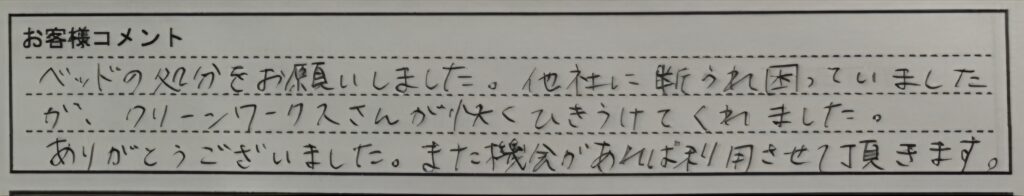 お客様コメント
ベッドの処分をお願いしました。他社に断られ困っていました
が、クリーンワークスさんが快くひきうけてくれました。
ありがとうございました。また機会があれば利用させて頂きます。